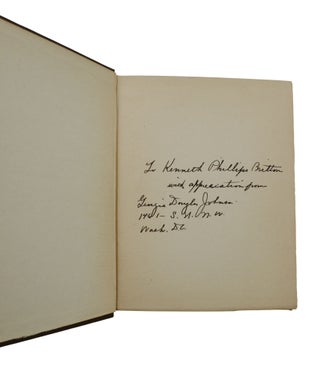 To Kenneth Phillips Britton
with appreciation from
Georgia Douglas Johnson
1461 - S. St. N.W.
Wash. D.C.